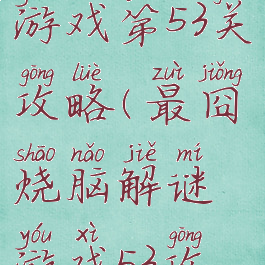 游戏第53关
gōng lüè zuì jiǒng
攻略(最囧
shāo nǎo jiě mí
烧脑解谜
yóu xì gōng
游戏53攻